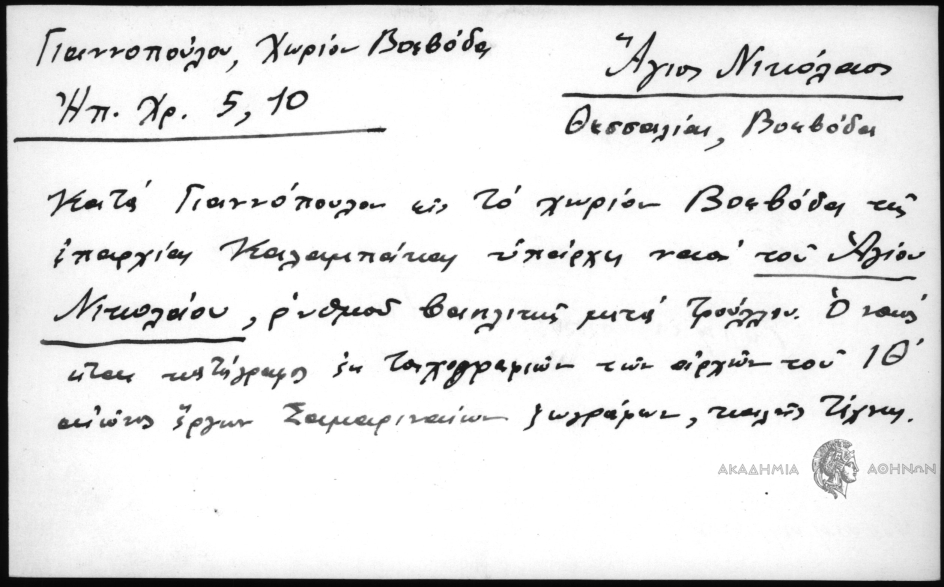 Γιαννοπούλου, Χωρίον Βοεβόδα
Ἠπ. Χρ. 5, 10
Ἅγιος Νικόλαος
Θεσσαλίας, Βοεβόδα
Κατά Γιαννόπουλον εἰς τό χωρίον Βοεβόδα τῆς
ἐπαρχίας Καλαμπάκας ὑπάρχει ναός τοῦ Ἁγίου
Νικολάου, ῥυθμοῦ βασιλικῆς μετά τρούλλου. Ὁ ναός
εἶναι κατάγραφος ἐκ τοιχογραφιῶν τῶν ἀρχῶν τοῦ ΙΘ΄
αἰῶνος ἔργων Σαμαριναίων ζωγράφων, καλῆς τέχνης.
ΑΚΑΔΗΜΙΑ ΑΘΗΝΩΝ